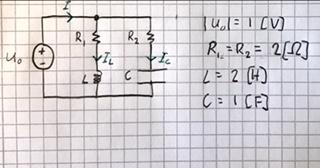 I
R₁
R₂
U₀
I_L
I_C
L
C
|U₀| = 1 [V]
R₁ = R₂ = 2 [Ω]
L = 2 [H]
C = 1 [F]